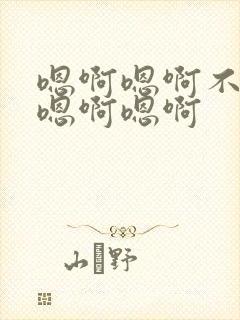 嗯啊嗯啊不
嗯啊嗯啊
山野